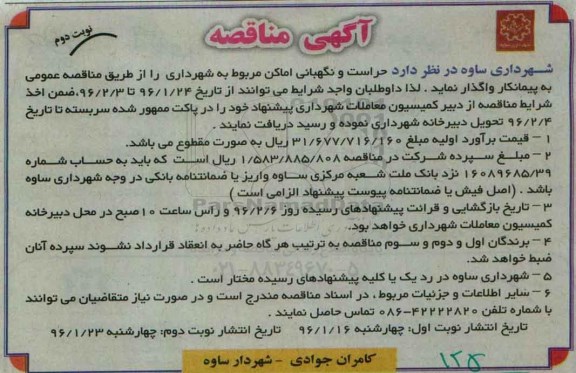 آگهی مناقصه
نوبت دوم
شهرداری ساوه در نظر دارد حراست و نگهبانی اماکن مربوط به شهرداری را از طریق مناقصه عمومی
به پیمانکار واگذار نماید . لذا داوطلبان واجد شرایط می توانند از تاریخ ۹۶/۱/۲۴ تا ۹۶/۲/۳،ضمن اخذ
شرایط مناقصه از دبیر کمیسیون معاملات شهرداری پیشنهاد خود را در پاکت ممهور شده سربسته تا تاریخ
۹۶/۲/۴ تحویل دبیرخانه شهرداری نموده و رسید دریافت نمایند .
۱ – قیمت برآورد اولیه مبلغ ۳۱/۶۷۷/۷۱۶/۱۶۰ ریال به صورت مقطوع می باشد.
۲ – مبلغ سپرده شرکت در مناقصه ۱/۵۸۳/۸۸۵/۸۰۸ ریال است که باید به حساب شماره
۱۶۰۸۹۶۸۵/۳۹ نزد بانک ملت شعبه مرکزی ساوه واریز یا ضمانتنامه بانکی در وجه شهرداری ساوه
باشد . (اصل فیش یا ضمانتنامه پیوست پیشنهاد الزامی است )
۳ – تاریخ بازگشایی و قرائت پیشنهادهای رسیده روز ۹۶/۲/۶ و راس ساعت ۱۰ صبح در محل دبیرخانه
کمیسیون معاملات شهرداری خواهد بود.
۴ – برندگان اول و دوم و سوم مناقصه به ترتیب هر گاه حاضر به انعقاد قرارداد نشوند سپرده آنان
ضبط خواهد شد.
۵ – شهرداری ساوه در رد یک یا کلیه پیشنهادهای رسیده مختار است .
۶ – سایر اطلاعات و جزئیات مربوط ، در اسناد مناقصه مندرج است و در صورت نیاز متقاضیان می توانند
با شماره تلفن ۴۲۲۲۲۸۲۰-۰۸۶ تماس حاصل نمایند .
تاریخ انتشار نوبت اول: چهارشنبه ۹۶/۱/۱۶ تاریخ انتشار نوبت دوم: چهارشنبه ۹۶/۱/۲۳
کامران جوادی – شهردار ساوه
۱۲۵